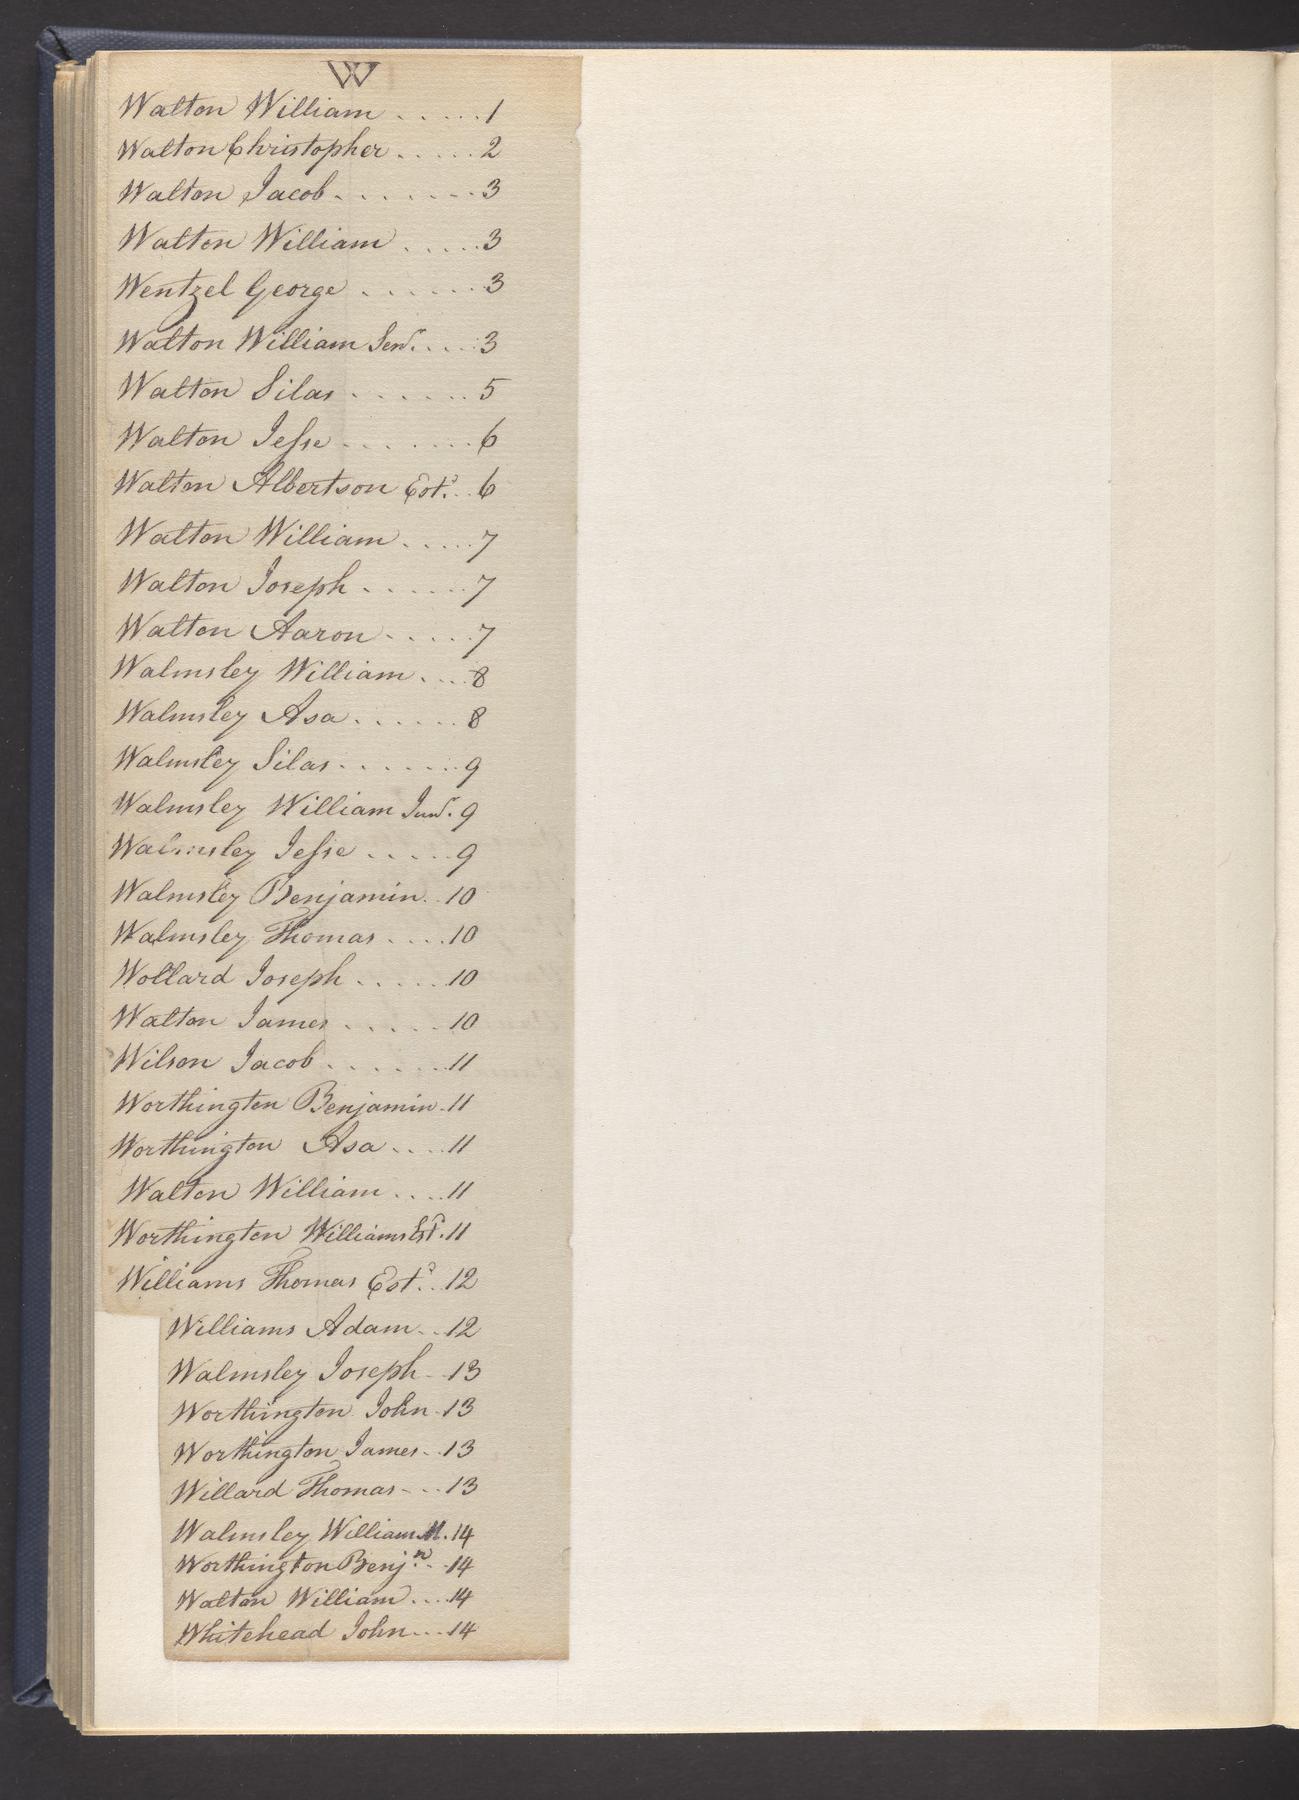 W
Walton William . . . . . 1
Walton Christopher . . . . . 2
Walton Jacob . . . . . . . 3
Walton William . . . . . 3
Wentzel George . . . . . . 3
Walton William Senr. . . . 3
Walton Silas . . . . . . . 5
Walton Jesse . . . . . . . 6
Walton Albertson Este. . . 6
Walton William . . . . . 7
Walton Joseph . . . . . . 7
Walton Aaron . . . . . 7
Walmsley William . . . . 8
Walmsley Asa . . . . . . 8
Walmsley Silas . . . . . . . 9
Walmsley William Junr. 9
Walmsley Jesse . . . . . 9
Walmsley Benjamin . . 10
Walmsley Thomas . . . . 10
Wollard Joseph . . . . . 10
Walton James . . . . . 10
Wilson Jacob . . . . . . . 11
Worthington Benjamin . 11
Worthington Asa . . . . 11
Walton William . . . . 11
Worthington Williams Este. 11
Williams Thomas Este. . . 12
Williams Adam . . . 12
Walmsley Joseph - . 13
Worthington John . 13
Worthington James . . 13
Willard Thomas - . . 13
Walmsley William M. 14
Worthington Benjn. . . 14
Walton William . . . . 14
Whitehead John . . . 14